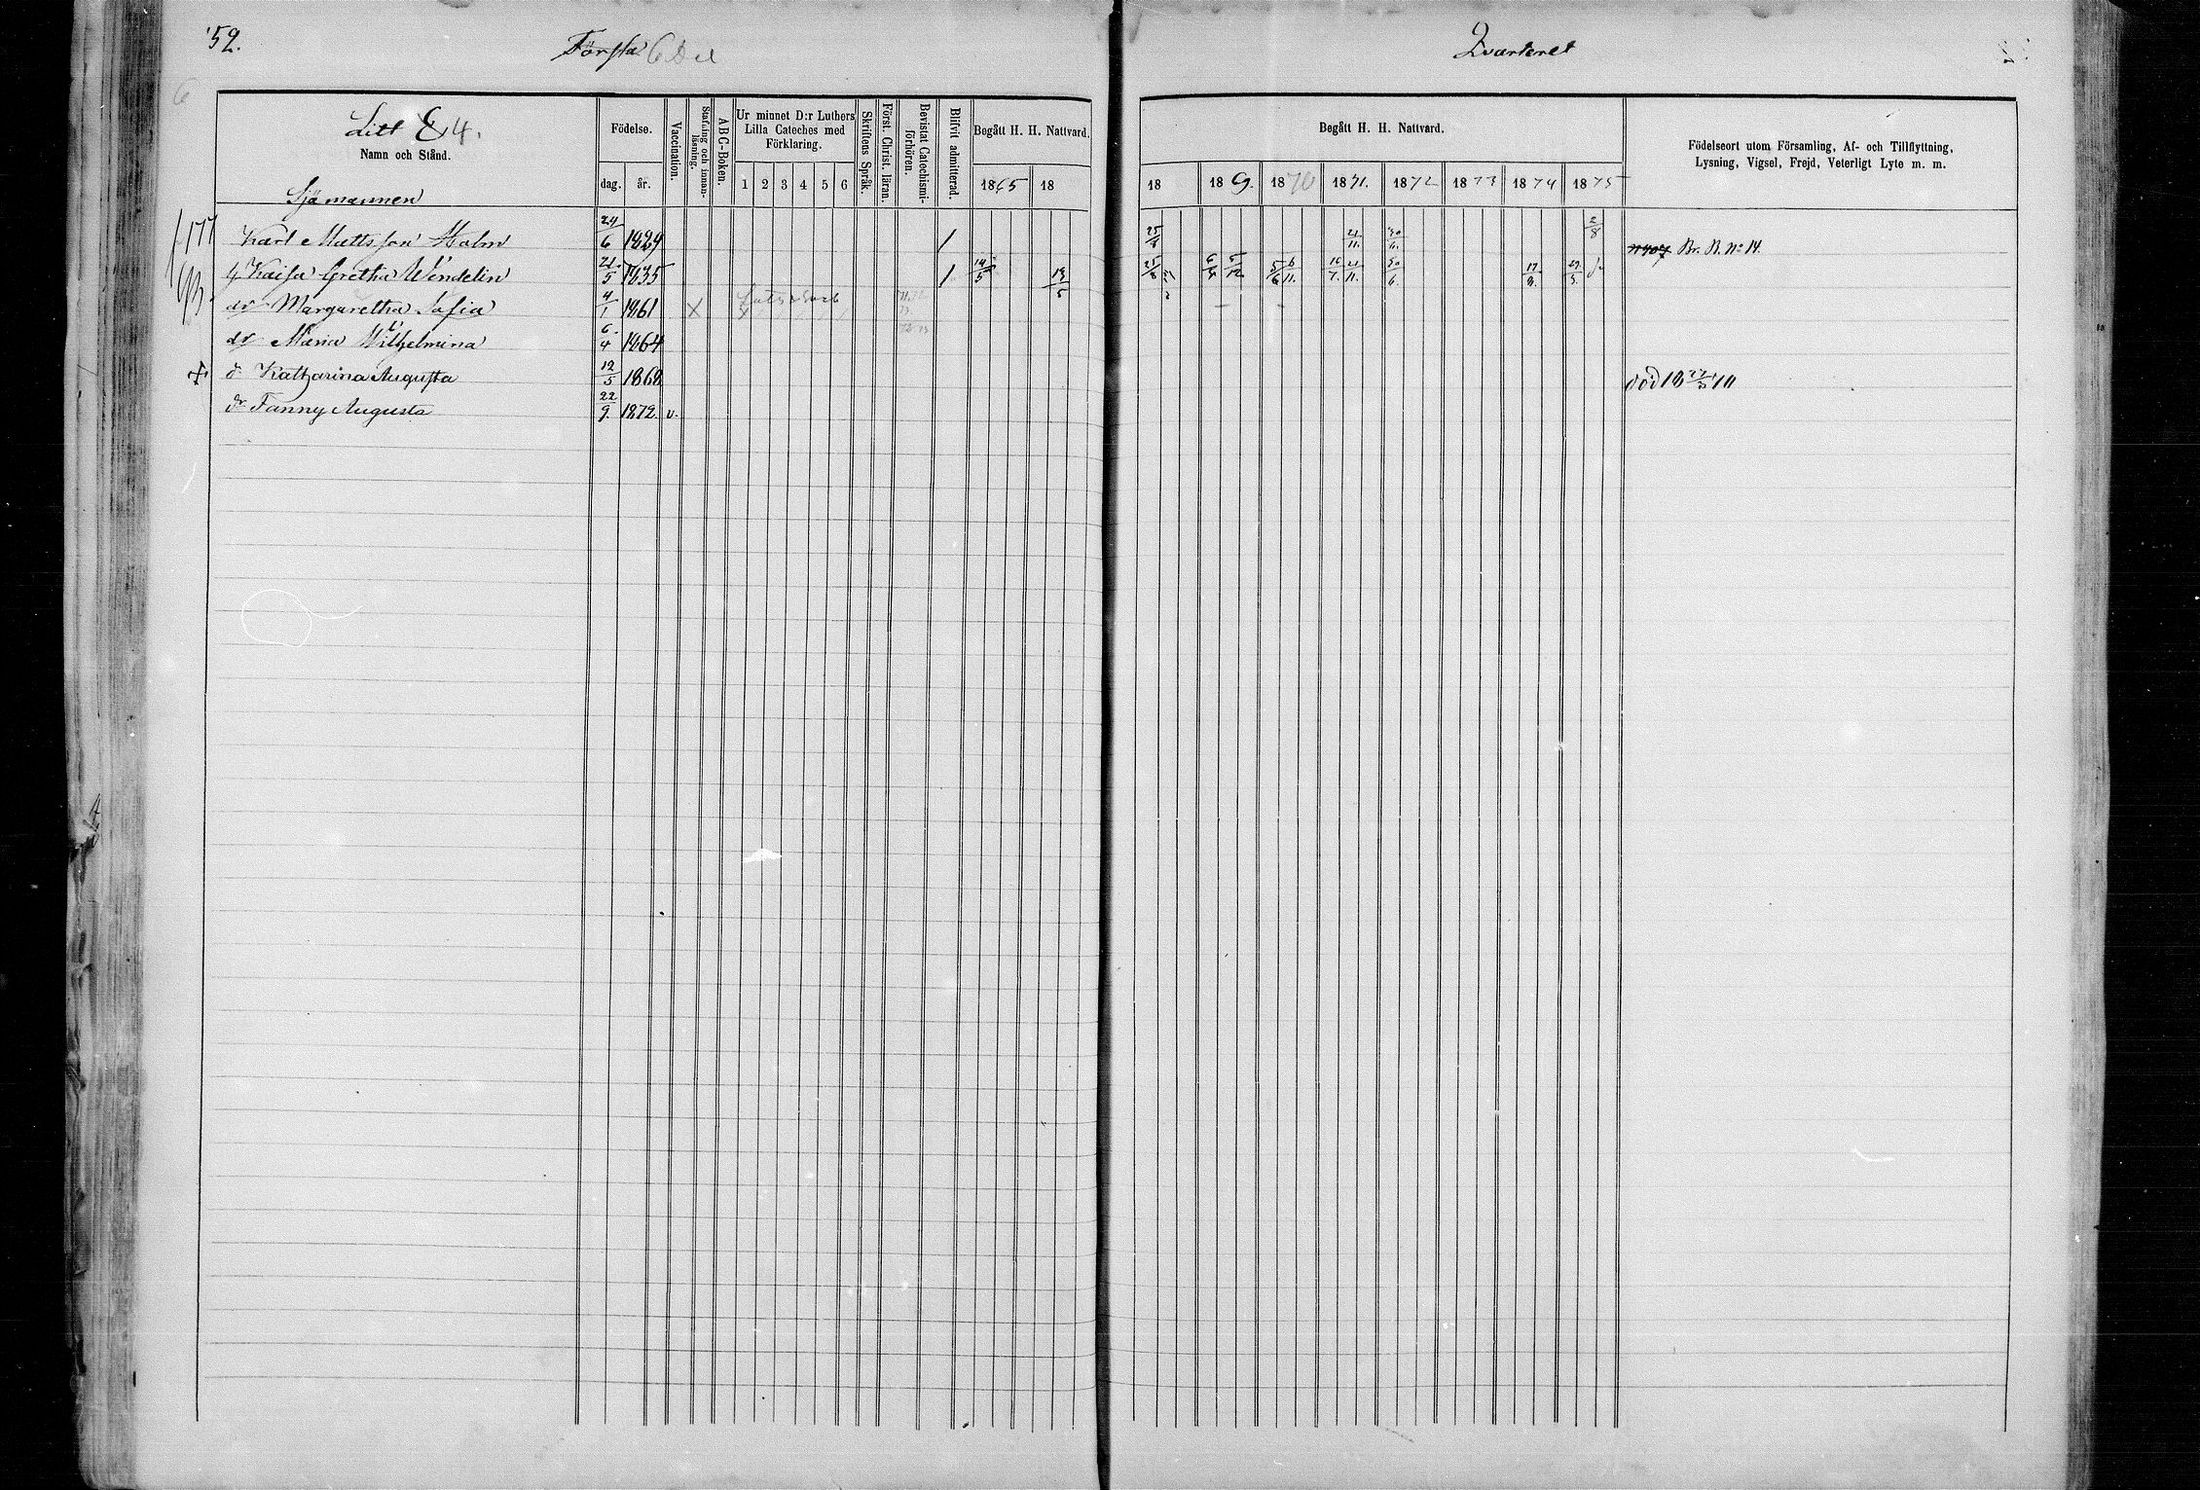 52.
Första 6 Del
Qvarteret
Litt E 4.
Namn och Stånd.
Födelse.
dag. år.
Vaccination.
Stafning och innanläsning.
ABC-Boken.
Ur minnet D:r Luthers Lilla Cateches med Förklaring.
1 2 3 4 5 6
Skriftens Språk.
Först. Christ. läran.
Bevistat Catechismiförhören.
Blifvit admitterad.
Begått H. H. Nattvard.
1865 18
Begått H. H. Nattvard.
18 1869. 1870 1871. 1872 1873 1874 1875
Födelseort utom Församling, Af- och Tillflyttning,
Lysning, Vigsel, Frejd, Veterligt Lyte m. m.
Sjömannen
Karl Mattsson Holm 24/6 1829 / 25/8 21/11. 30/6. 2/8 Br. B. No 14.
h Kaisa Gretha Wendelin 21/5 1835 / 14/5 13/5 25/8 5/12 5/6 6/11. 16/7. 21/11. 30/6.
dr Margaretha Sofia 4/1 1861 X
dr Maria Wilhelmina 6/4 1864
d Katharina Augusta 12/5 1868 död
dr Fanny Augusta 22/9. 1872. v.